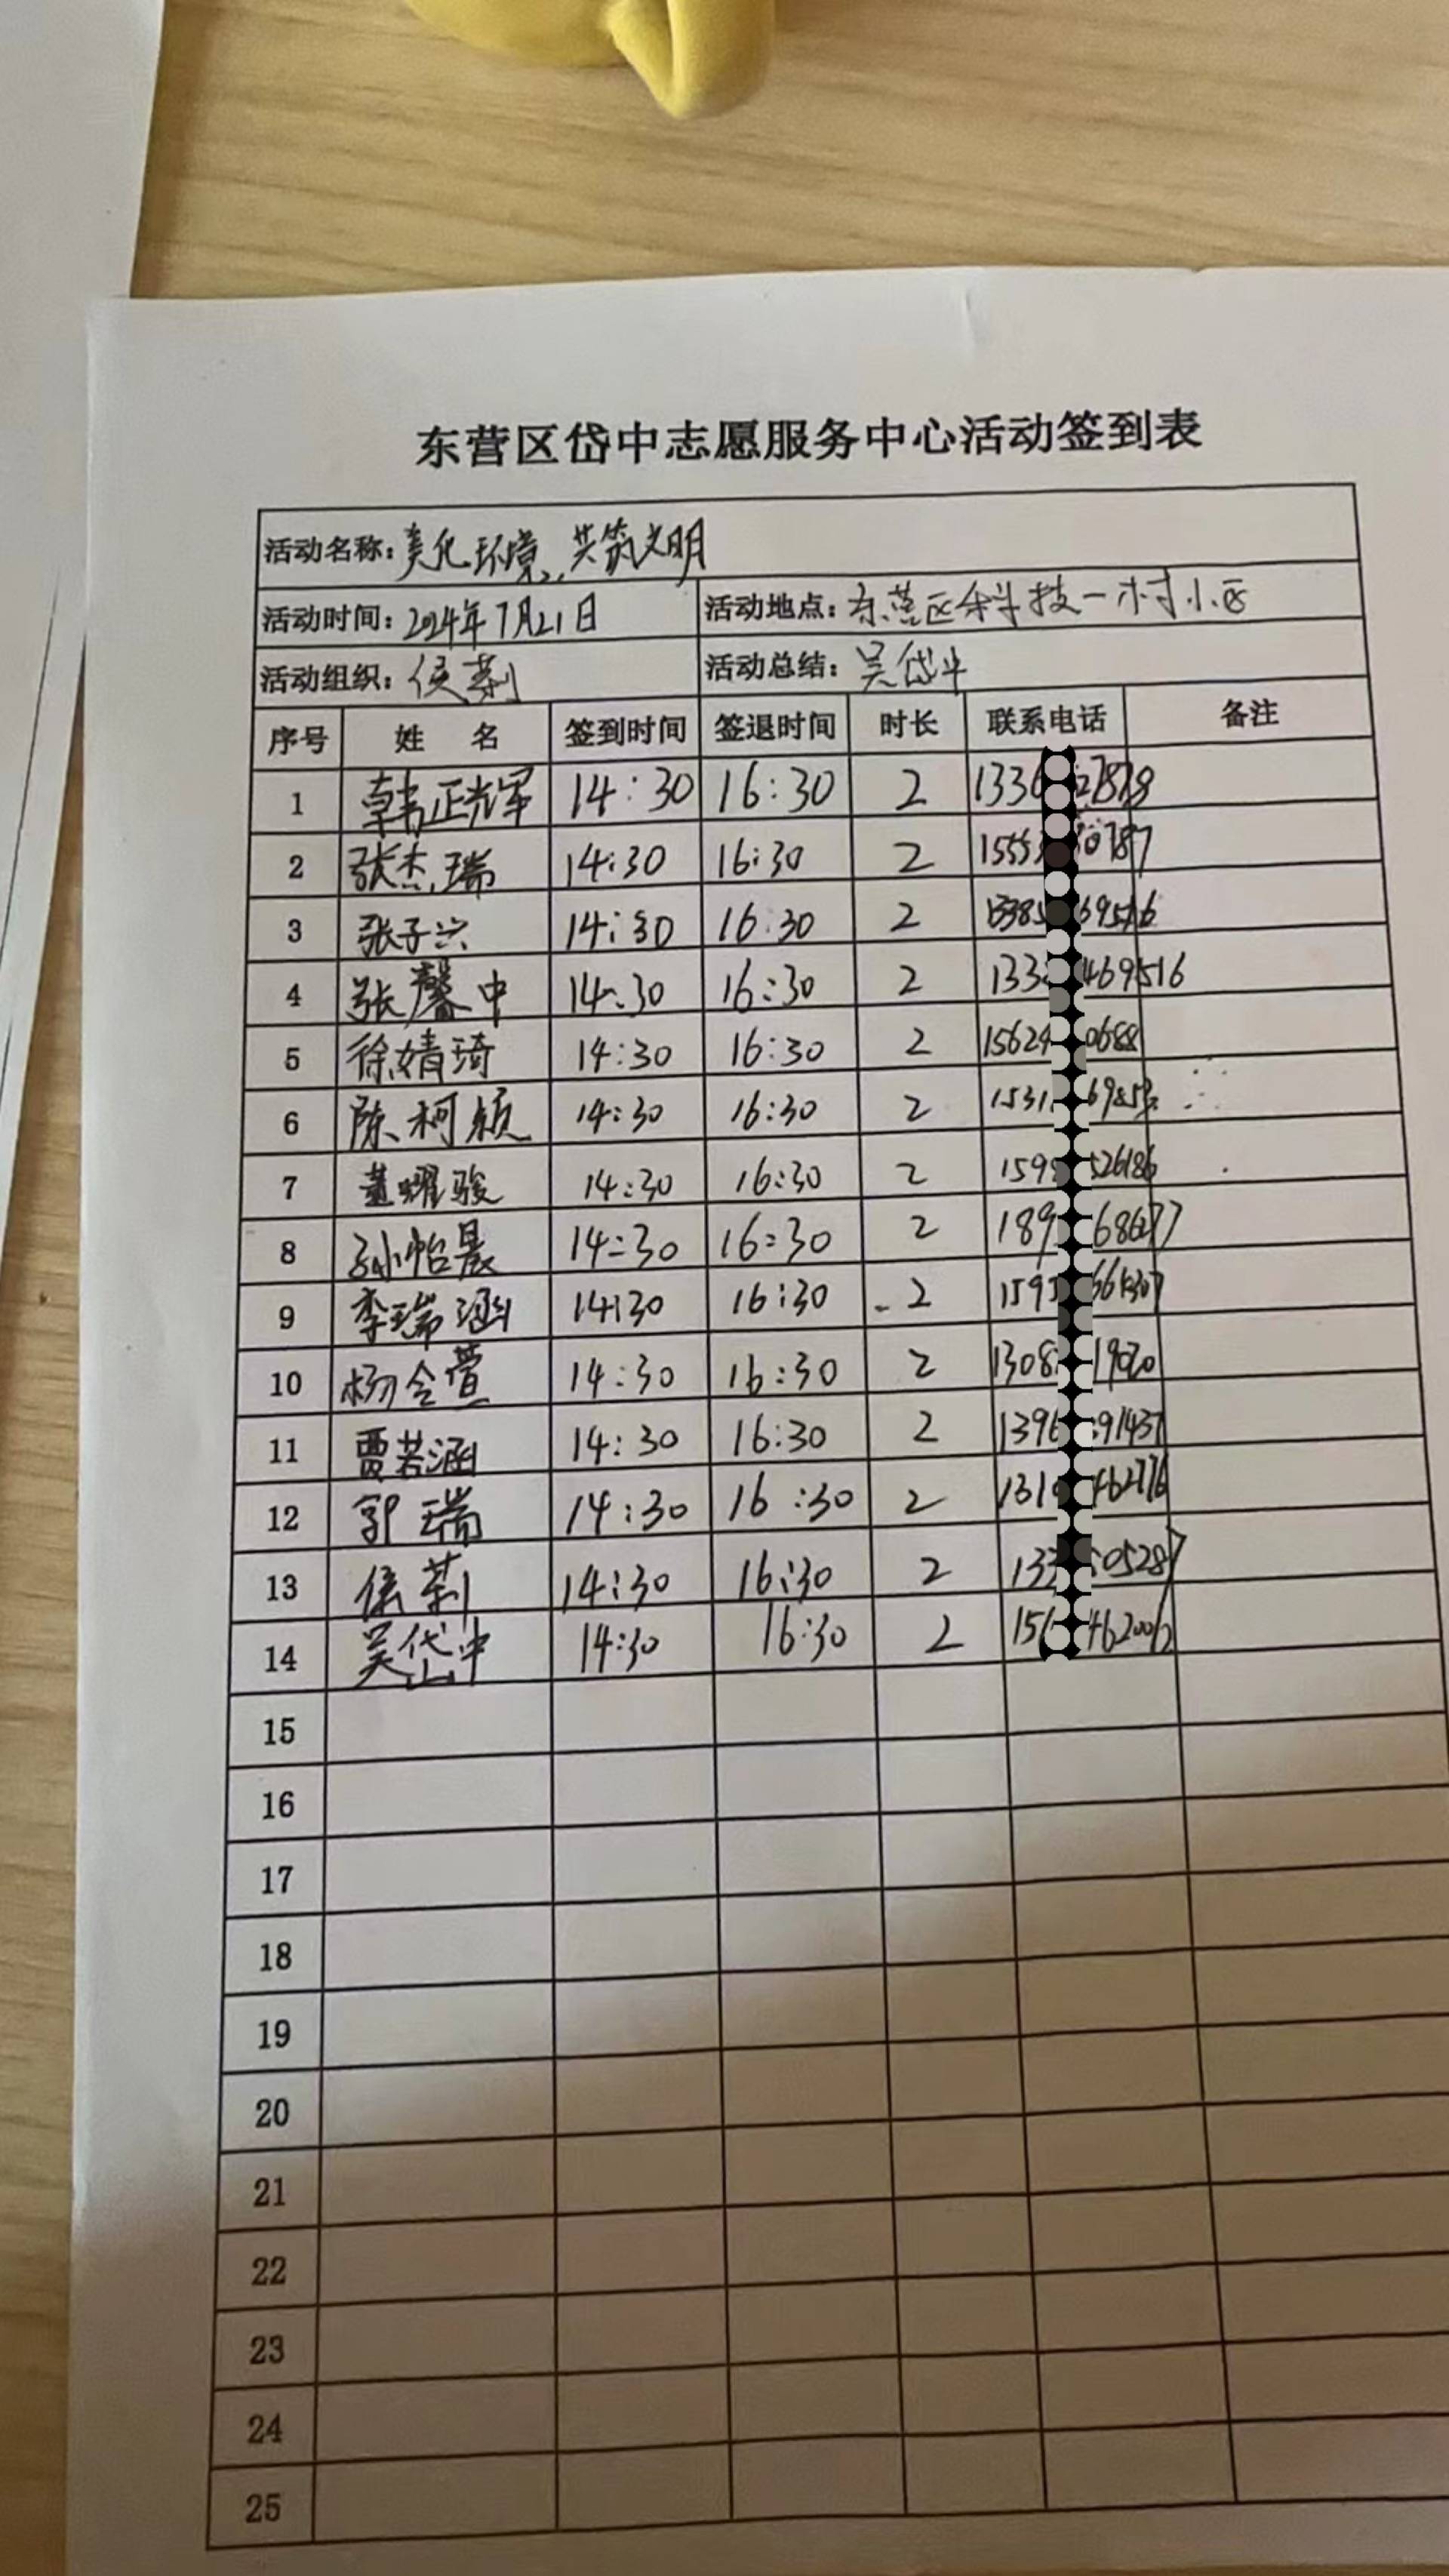 东营区岱中志愿服务中心活动签到表
活动名称：美化环境，共筑文明
活动时间：2024年7月21日 活动地点：东营区科技一村小区
活动组织：侯莉 活动总结：吴岱中
序号 姓 名 签到时间 签退时间 时长 联系电话 备注
1 韩正辉军 14:30 16:30 2 1336 27878
2 张杰瑞 14:30 16:30 2 1555 0787
3 张子兴 14:30 16:30 2 15385 69516
4 张馨中 14:30 16:30 2 133 469516
5 徐婧琦 14:30 16:30 2 15624 0688
6 陈柯颖 14:30 16:30 2 1531 6985
7 董曜骏 14:30 16:30 2 159 526186
8 孙怡晨 14:30 16:30 2 189 68677
9 李瑞涵 14:30 16:30 2 159 661307
10 杨令萱 14:30 16:30 2 1308 19020
11 贾若涵 14:30 16:30 2 1396 91437
12 郭瑞 14:30 16:30 2 131 462776
13 侯莉 14:30 16:30 2 133 05287
14 吴岱中 14:30 16:30 2 15 462006
15
16
17
18
19
20
21
22
23
24
25